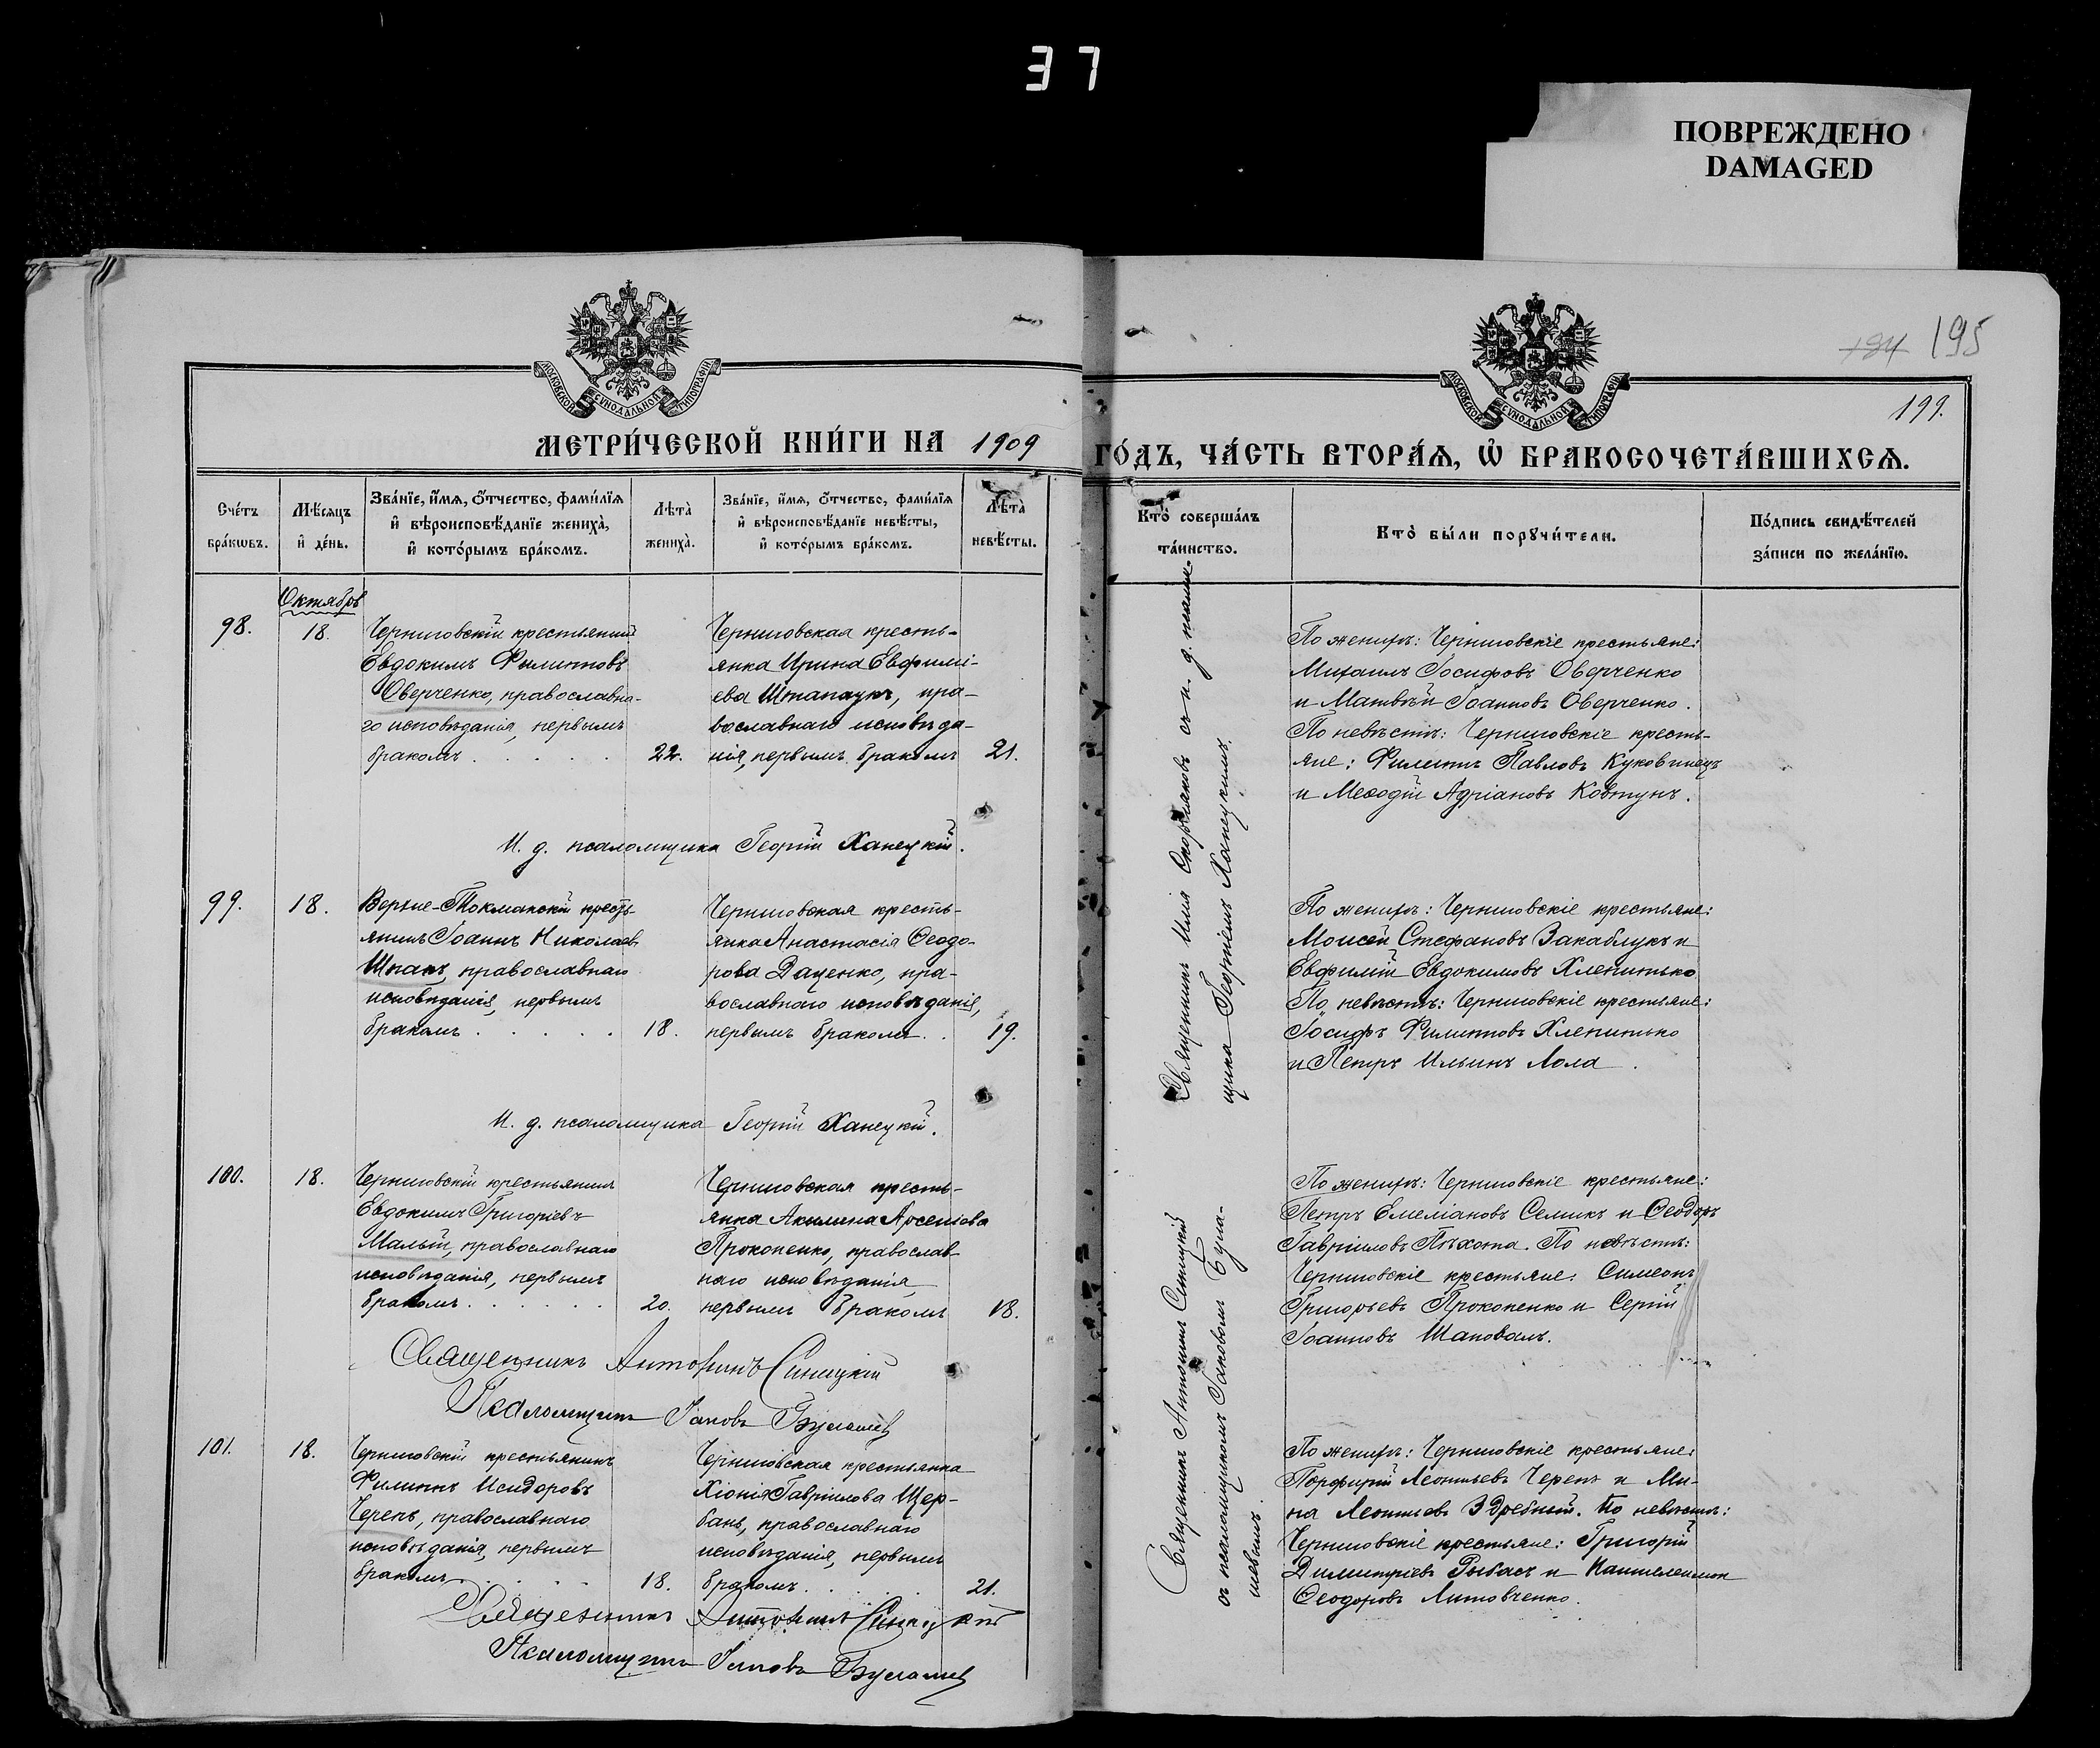 37
ПОВРЕЖДЕНО
DAMAGED
184 195
199.
МОСКОВСКОЙ СѴНОДАЛЬНОЙ ТИПОГРАФІИ
МОСКОВСКОЙ СѴНОДАЛЬНОЙ ТИПОГРАФІИ
МЕТРИ́ЧЕСКОЙ КНИ́ГИ НА 1909
ГО́ДЪ, ЧА́СТЬ ВТОРА́Ѧ, Ѽ БРАКОСОЧЕТА́ВШИХСѦ.
Сче́тъ
бра́кѡвъ.
Мѣ́сяцъ
и҆ де́нь.
Зва́нїе, и҆́мя, ѻ҆́тчество, фами́лїя
и҆ вѣроисповѣ́данїе жениха̀,
и҆ кото́рымъ бра́комъ.
Лѣ́та̀
жениха̀.
Зва́нїе, и҆́мя, ѻ҆́тчество, фами́лїя
и҆ вѣроисповѣ́данїе невѣ́сты,
и҆ кото́рымъ бра́комъ.
Лѣ́та̀
невѣ́сты.
Кто̀ соверша́лъ
та́инство.
Кто̀ бы́ли порꙋчи́тели.
По́дпись свидѣ́телей
за́писи по жела́нїю.
Октябрь
98.
18.
Черниговскій крестьянинъ
Евдокимъ Филипповъ
Оверченко, православна-
го исповѣданія, первымъ
бракомъ . . . . . 22.
Черниговская кресть-
янка Ирина Евфимі-
ева Шпапаукъ, пра-
вославнаго исповѣда-
нія, первымъ бракомъ 21.
По женихѣ: Черниговскіе крестьяне:
Михаилъ Іосифовъ Оверченко
и Матвѣй Іоанновъ Оверченко.
По невѣстѣ: Черниговскіе кресть-
яне: Филиппъ Павловъ Куковинецъ
и Меѳодій Адріановъ Ковтунъ.
И. д. псаломщика Георгій Ханецкій.
Священникъ Илія Спорыковъ съ и. д. псалом-
щика Георгіемъ Ханецкимъ.
99.
18.
Верхне-Токмакскій кресть-
янинъ Іоаннъ Николаевъ
Шпакъ, православнаго
исповѣданія, первымъ
бракомъ . . . . . 18.
Черниговская кресть-
янка Анастасія Ѳеодо-
рова Даценко, пра-
вославнаго исповѣданія,
первымъ бракомъ . . 19.
По женихѣ: Черниговскіе крестьяне:
Моисей Стефановъ Закаблукъ и
Евфимій Евдокимовъ Хлепитько
По невѣстѣ: Черниговскіе крестьяне:
Іосифъ Филипповъ Хлепитько
и Петръ Ильинъ Лола.
И. д. псаломщика Георгій Ханецкій.
100.
18.
Черниговскій крестьянинъ
Евдокимъ Григоріевъ
Малый, православнаго
исповѣданія, первымъ
бракомъ . . . . . . 20.
Черниговская кресть-
янка Акилина Арсеніова
Прокопенко, православ-
наго исповѣданія,
первымъ бракомъ 18.
По женихѣ: Черниговскіе крестьяне:
Петръ Емеліановъ Семикъ и Ѳеодоръ
Гавріиловъ Пѣхота. По невѣстѣ:
Черниговскіе крестьяне: Симеонъ
Григорьевъ Прокопенко и Сергій
Іоанновъ Шаповалъ.
Священникъ Антонинъ Синицкій
Псаломщикъ Іаковъ Булашев
Священникъ Антонинъ Синицкій
съ псаломщикомъ Іаковомъ Була-
шевымъ.
101.
18.
Черниговскій крестьянинъ
Филиппъ Исидоровъ
Черепъ, православнаго
исповѣданія, первымъ
бракомъ . . . . . 18.
Черниговская крестьянка
Хіонія Гавріилова Щер-
бань, православнаго
исповѣданія, первымъ
бракомъ . . . . . 21.
По женихѣ: Черниговскіе крестьяне:
Порфирій Леонтьевъ Черепъ и Ми-
на Леонтьевъ Здребный. По невѣстѣ:
Черниговскіе крестьяне: Григорій
Димитріевъ Рыбасъ и Пантелеимон
Ѳеодоровъ Литовченко.
Священникъ Антонинъ Синицкій
Псаломщикъ Іаковъ Булашев